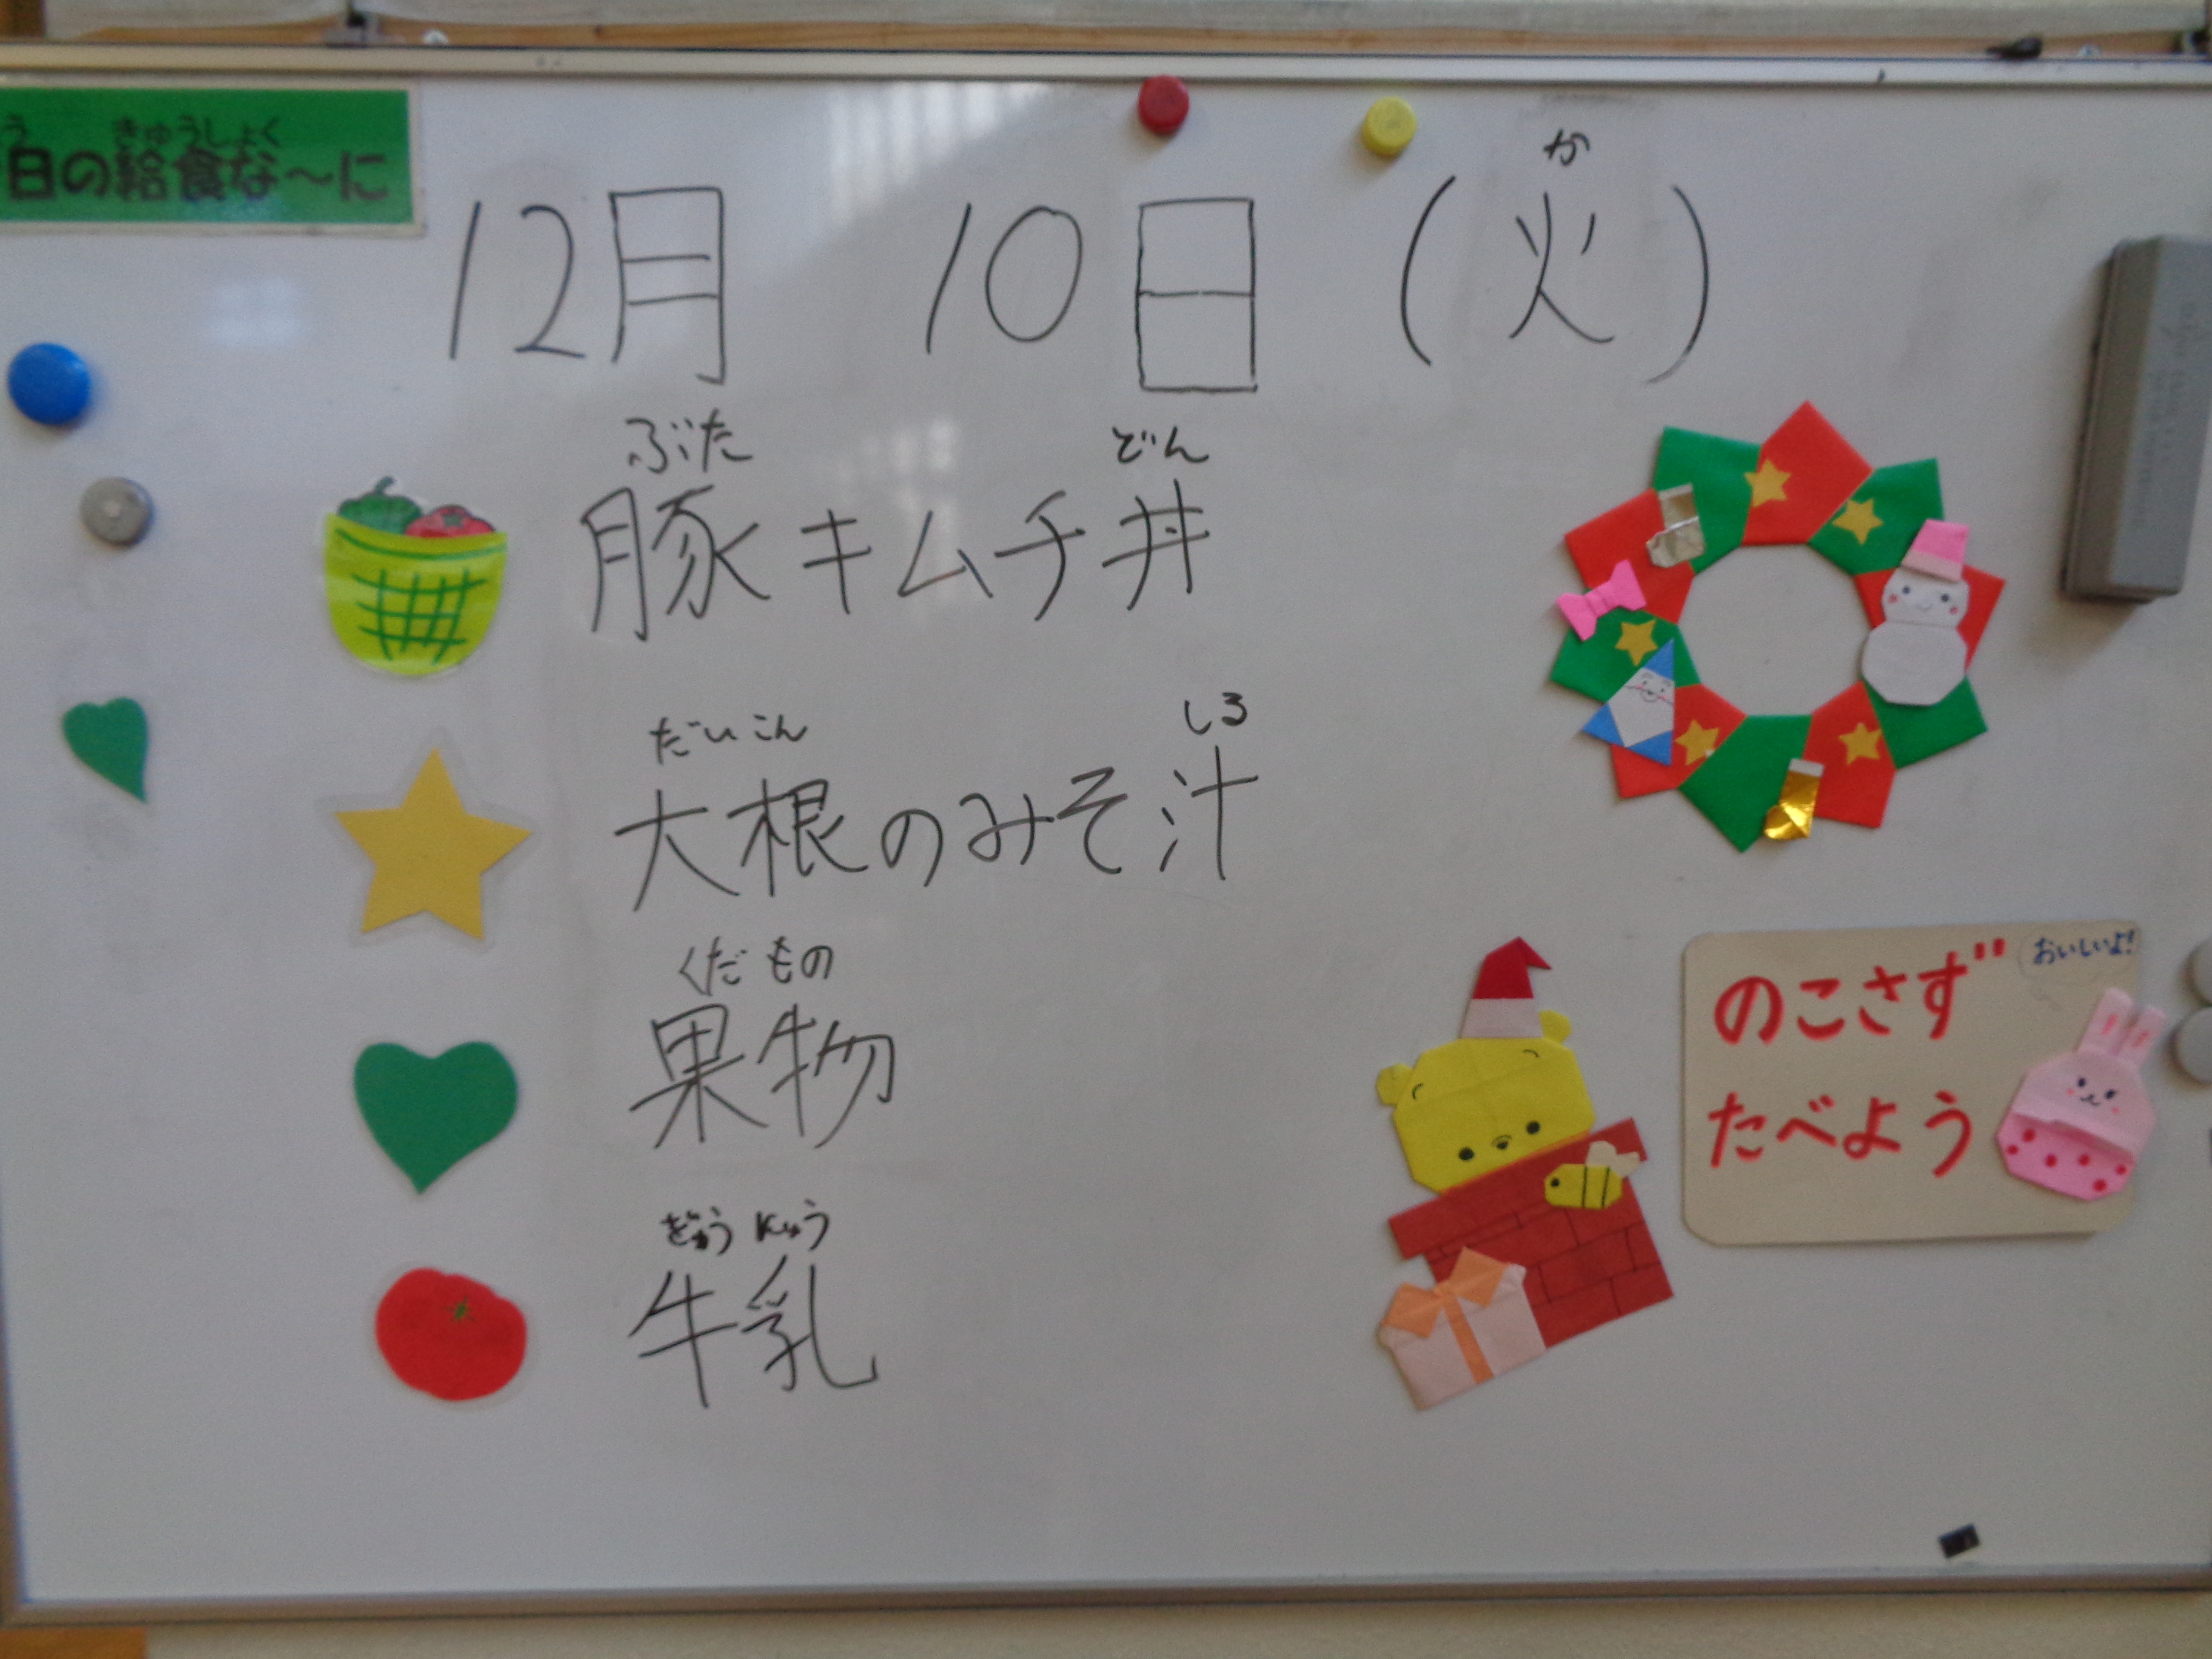 う きゅうしょく
日の給食な〜に
か
12月 10日 (火)
ぶた どん
豚キムチ丼
だいこん しる
大根のみそ汁
くだもの
果物
ぎゅうにゅう
牛乳
おいしいよ!
のこさず
たべよう